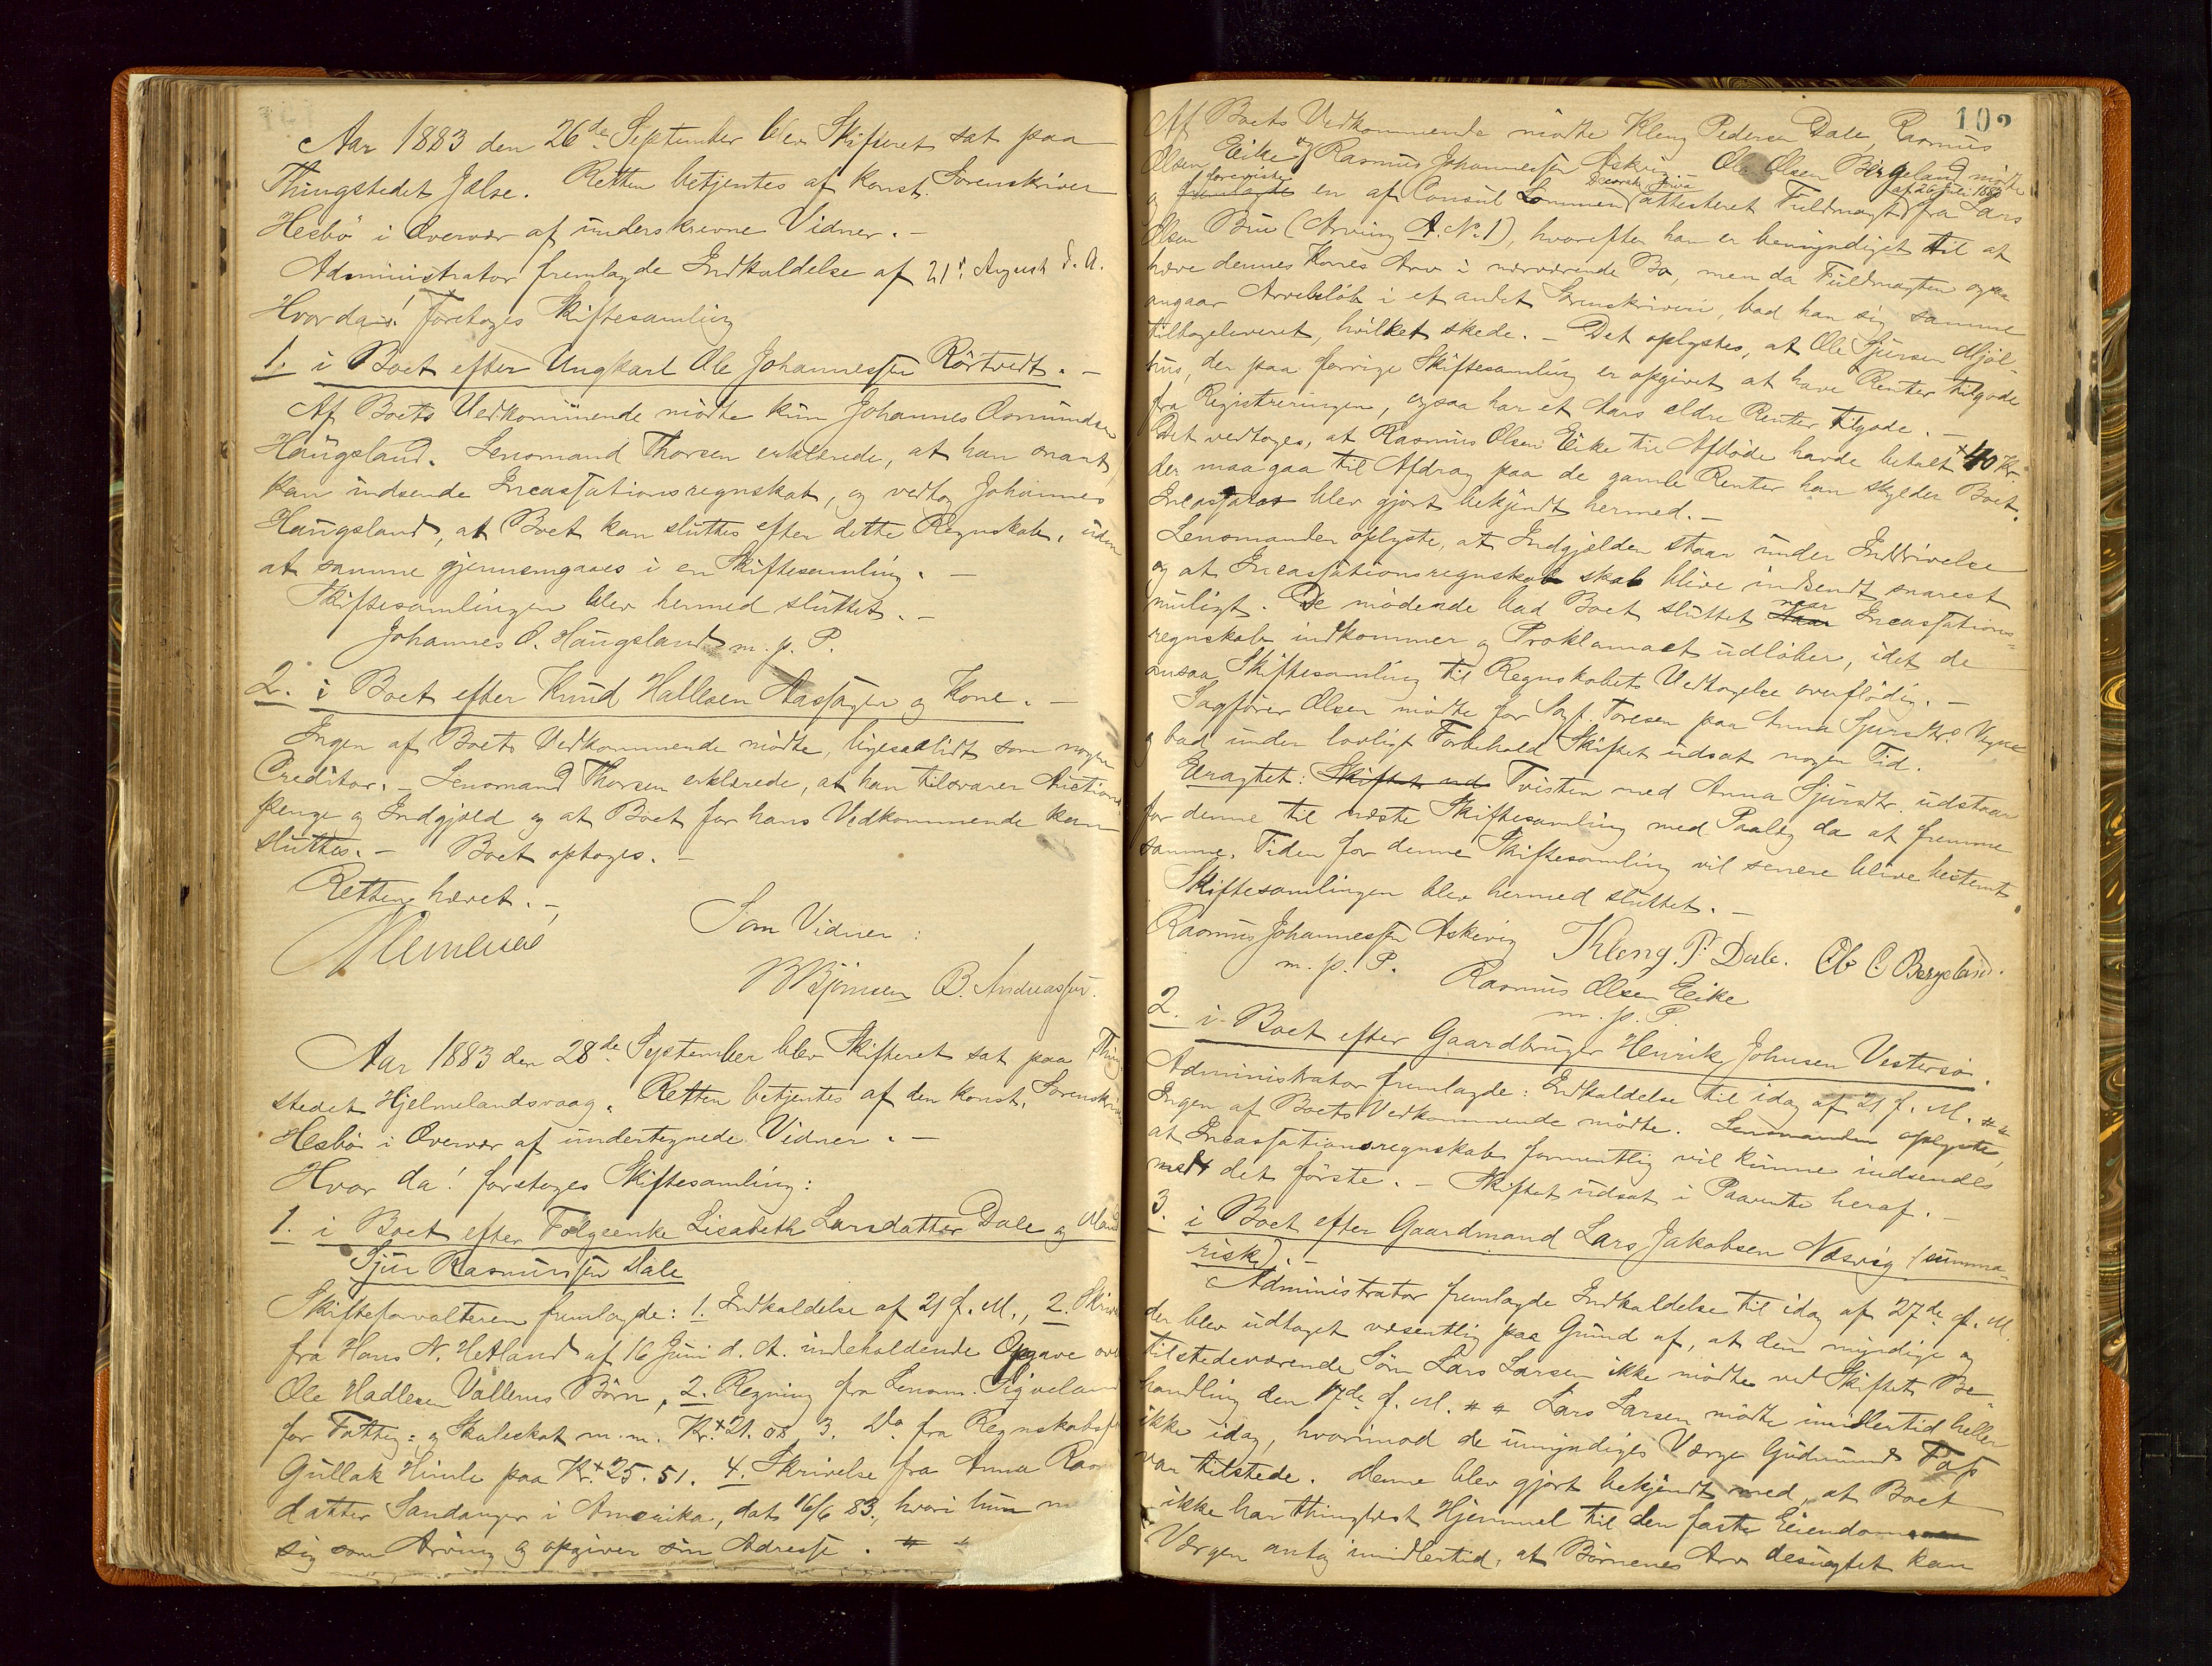 Aar 1883 den 26de September blev Skifteret sat paa
Thingstedet Jelse. Retten betjentes af konst. Sorenskriver
Hesbö i Overvær af underskrevne Vidner. –
Administrator fremlagde Indkaldelse af 21' August d. A.
Hvor da! foretoges Skiftesamling
1. i Boet efter Ungkarl Ole Johannessen Rörtvedt. –
Af Boets Vedkommende mödte kun Johannes Osmundsen
Haugsland. Lensmand Thorsen erklærede, at han snart
kan indsende Incassationsregnskab, og vedtog Johannes
Haugsland, at Boet kan sluttes efter dette Regnskab, uden
at samme gjennemgaaes i en Skiftesamling. –
Skiftesamlingen blev hermed sluttet. –
Johannes O. Haugsland m. p. P.
2. i Boet efter Knud Halleen og Kone. –
Ingen af Boets Vedkommende mödte, ligesaalidt som nogen
Creditor. – Lensmand Thorsen erklærede, at han tilsvarer Auctions
penge og Indgjæld og at Boet for hans Vedkommende kan
sluttes. – Boet optoges. –
Retten hævet. –
Som Vidner:
B Björnsen B. Andreassen.
Aar 1883 den 28de September blev Skifteret sat paa Thing
stedet Hjelmelandsvaag. Retten betjentes af den konst. Sorenskriver
Hesbö i Overvær af undertegnede Vidner. –
Hvor da! foretoges Skiftesamling:
1. i Boet efter Følgeenke Lisabeth Larsdatter Dale og Mand
Sjur Rasmussen Dale
Skifteforvalteren fremlagde: 1. Indkaldelse af 21 f. M., 2. Skrivelse
fra Hans N. Hetland af 16 Juni d. A. indeholdende Opgave over
Ole Hadlesen Vallerus Börn, 2. Regning fra Lensm. Sigveland
for Fattig- og Skoleskat m. m. Kr. 21. 08 3. Do fra Regnskabsf
Gullak Himle paa Kr. 25. 51. 4. Skrivelse fra Anna Ras
datter Sandanger i Amerika, dat. 16/6 83, hvori hun m
sig som Arving og opgiver sin Adresse. # #
102
Af Boets Vedkommende mödte Kleng Pedersen Dale, Rasmus
Olsen Eike og Rasmus Johannessen Askvig – Ole Olsen Bergeland mödte
og fremlagde foreviste en af Consul Lommen Decorah Iowa attesteret Fuldmagt af 26 Juli 1883 fra Lars
Olsen Bru (Arving A. No 1), hvorefter han er bemyndiget til at
hæve dennes Kones Arv i nærværende Bo, men da Fuldmagten ogsaa
angaar Arvebelöb i et andet Sorenskriveri, bad han sig samme
tilbageleveret, hvilket skede. – Det oplystes, at Ole Sjursen Mjöl-
hus, der paa forrige Skiftesamling er opgivet at have Renter tilgode
fra Registreringen, ogsaa har et Aars ældre Renter tilgode. –
Det vedtoges, at Rasmus Olsen Eike til Afdöde havde betalt 40 Kr.
der maa gaa til Afdrag paa de gamle Renter han skylder Boet.
Incassator blev gjort bekjendt hermed. –
Lensmanden oplyste, at Indgjælden staar under Inddrivelse
og at Incassationsregnskab skal blive indsendt snarest
muligt. De mödende bad Boet sluttet Naar naar Incassations-
regnskab indkommer og Proklamaet udlöber, idet de
ansaa Skiftesamling til Regnskabets Vedtagelse overflödig. –
Sagförer Olsen mödte for Sagf. Toresen paa Anna Sjursdtrs Vegne
og bad under lovligt Forbehold Skiftet udsat nogen Tid.
Eragtet: Skiftet ud Tvisten med Anna Sjursdtr. udstaar
for denne til næste Skiftesamling med Paalæg da at fremme
samme. Tiden for denne Skiftesamling vil senere blive bestemt.
Skiftesamlingen blev hermed sluttet. –
Rasmus Johannessen Askvig Kleng P. Dale. Ole O Bergeland.
m. p. P. Rasmus Olsen Eike
m. p. P.
2. i Boet efter Gaardbruger Henrik Johnsen Vestersö.
Administrator fremlagde: Indkaldelse til idag af 21 f. M. # #
Ingen af Boets Vedkommende mödte. Lensmanden oplyste,
at Incassationsregnskab formentlig vil kunne indsendes
med det förste. – Skiftet udsat i Paavente heraf. –
3. i Boet efter Gaardmand Lars Jakobsen Næsvig (summa-
risk). –
Administrator fremlagde Indkaldelse til idag af 27de f. M.
der blev udtaget væsentlig paa Grund af, at den myndige og
tilstedeværende Sön Lars Larsen ikke mödte ved Skiftets Be-
handling den 17de f. M. # # Lars Larsen mödte imidlertid heller
ikke idag, hvorimod de umyndiges Værge Gudmund
var tilstede. Denne blev gjort bekjendt med, at Boet
ikke har thinglæst Hjemmel til den faste Eiendom
Værgen antog imidlertid, at Börnenes Arv desuagtet kan